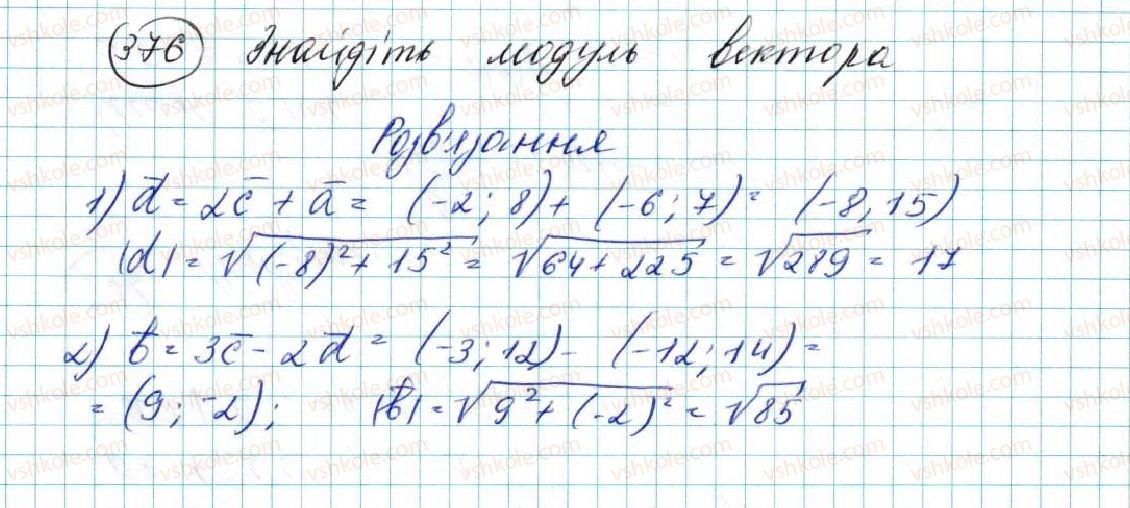 376 Знайдіть модуль вектора
Розв'язання
1) d̅ = 2c̅ + a̅ = (-2; 8) + (-6; 7) = (-8, 15)
|d| = √((-8)² + 15²) = √(64 + 225) = √289 = 17
2) b̅ = 3c̅ - 2d̅ = (-3; 12) - (-12; 14) =
= (9; -2); |b̅| = √(9² + (-2)²) = √85
vshkole.com